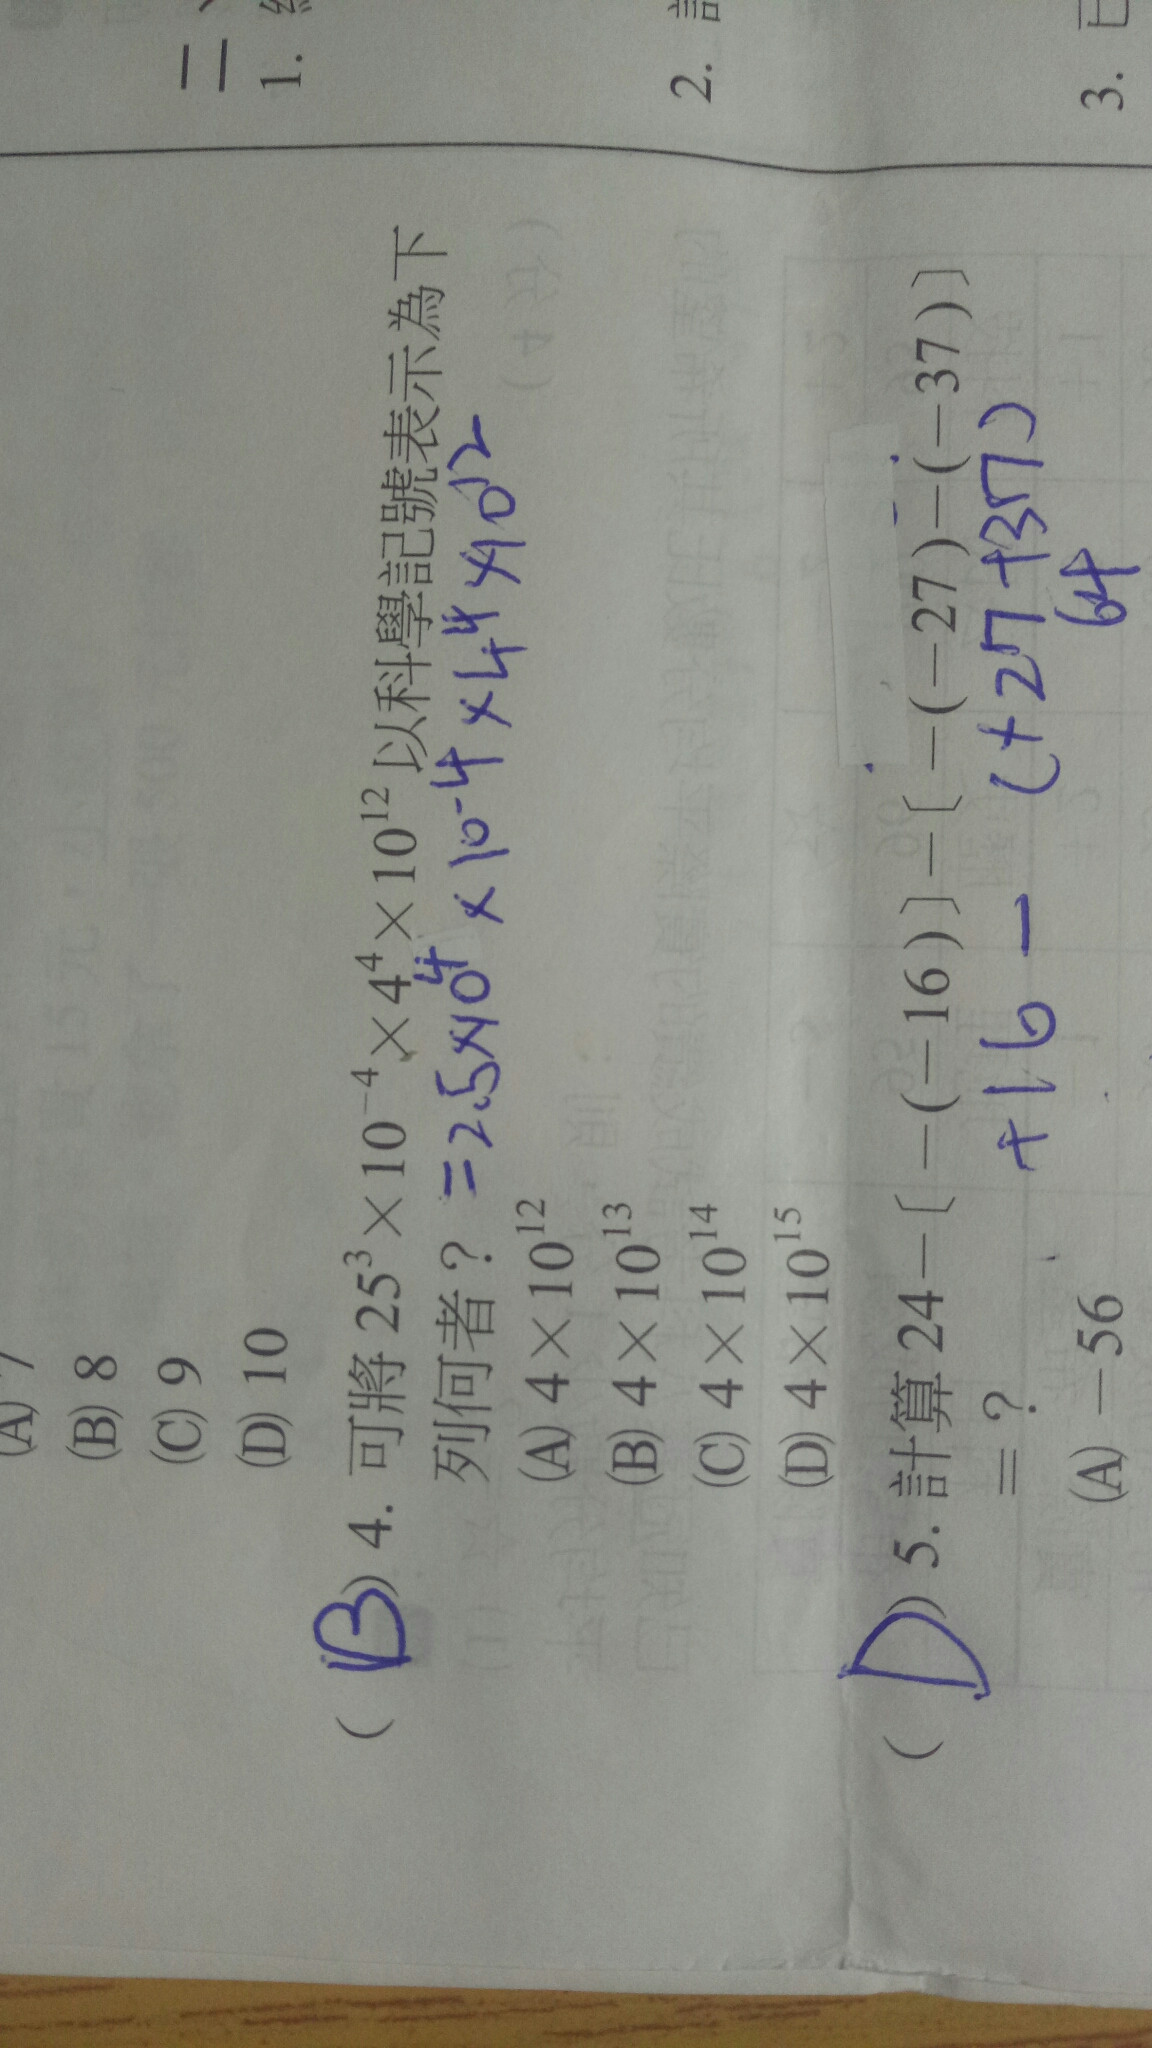 (A) 7
(B) 8
(C) 9
(D) 10
(B) 4. 可將 25³×10⁻⁴×4⁴×10¹² 以科學記號表示為下
列何者？ =2.5×10⁴×10⁻⁴×4⁴×10¹²
(A) 4×10¹²
(B) 4×10¹³
(C) 4×10¹⁴
(D) 4×10¹⁵
(D) 5. 計算 24－〔－(－16)〕－〔－(－27)－(－37)〕
＝？ +16 － (+27+37)
64
(A) －56
二、
1.
2.
3.